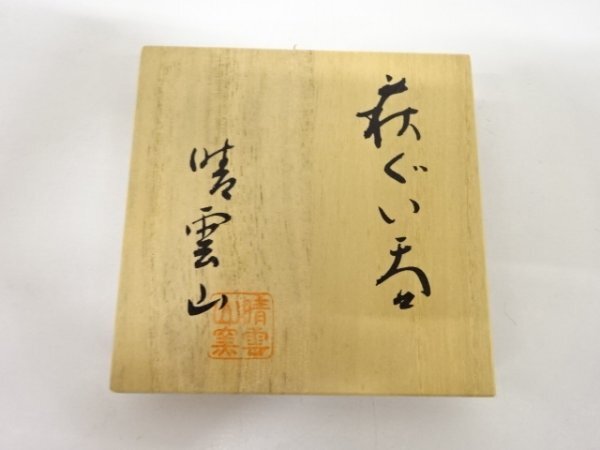 萩ぐい呑
晴雲山
晴雲
山窯